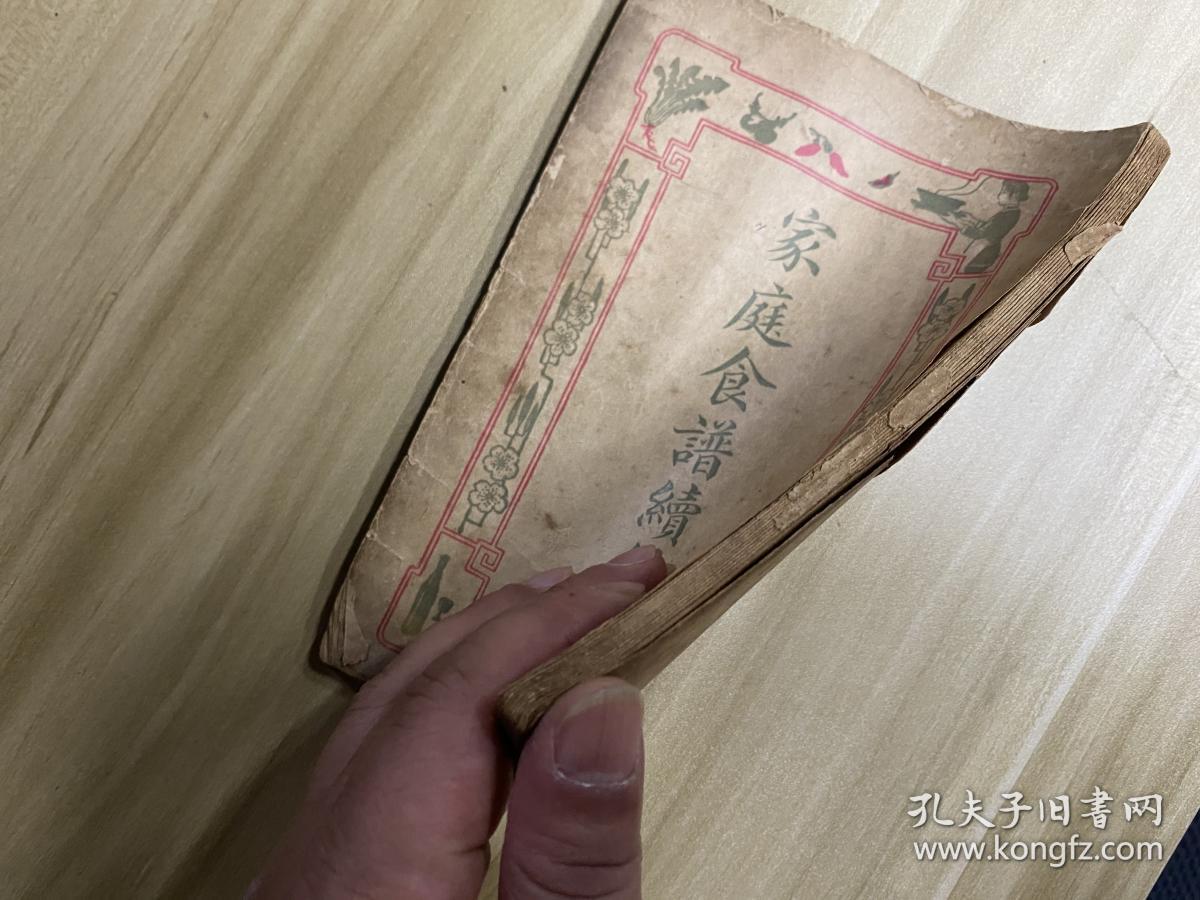 家庭食譜續
孔夫子旧書网
www.kongfz.com